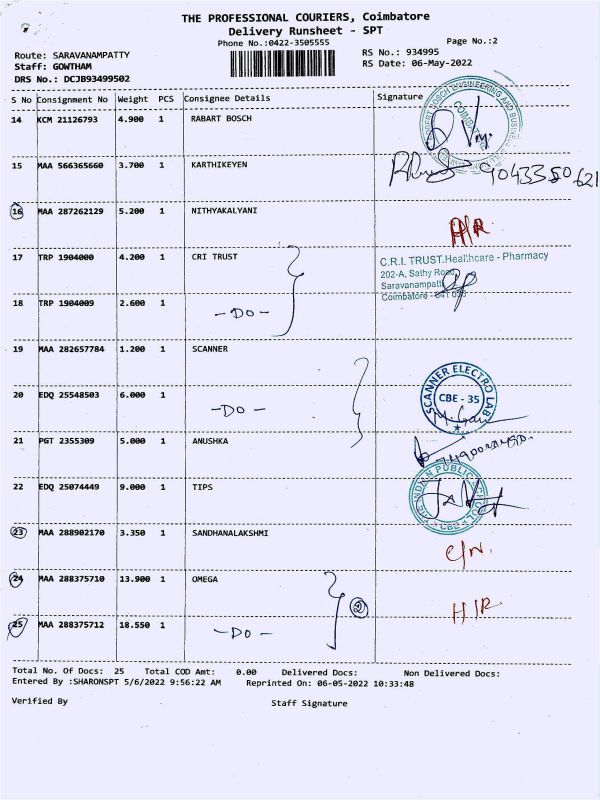 THE PROFESSIONAL COURIERS, Coimbatore
Delivery Runsheet - SPT
Phone No.:0422-3505555
Page No.:2
Route: SARAVANAMPATTY
RS No.: 934995
Staff: GOWTHAM
RS Date: 06-May-2022
DRS No.: DCJB93499502
S No Consignment No Weight PCS Consignee Details Signature
14 KCM 21126793 4.900 1 RABART BOSCH
15 MAA 566365660 3.700 1 KARTHIKEYEN
16 MAA 287262129 5.200 1 NITHYAKALYANI
17 TRP 1904000 4.200 1 CRI TRUST
C.R.I. TRUST.Healthcare - Pharmacy
202-A, Sathy Road,
Saravanampatti
Coimbatore - 641 035
18 TRP 1904009 2.600 1 - DO -
19 MAA 282657784 1.200 1 SCANNER
SCANNER ELECTRO LAB
CBE - 35
20 EDQ 25548503 6.000 1 - DO -
21 PGT 2355309 5.000 1 ANUSHKA
22 EDQ 25074449 9.000 1 TIPS
THE INDIAN PUBLIC SCHOOL
CBE
23 MAA 288902170 3.350 1 SANDHANALAKSHMI
24 MAA 288375710 13.900 1 OMEGA
2
H/R
25 MAA 288375712 18.550 1 - DO -
Total No. Of Docs: 25 Total COD Amt: 0.00 Delivered Docs: Non Delivered Docs:
Entered By :SHARONSPT 5/6/2022 9:56:22 AM Reprinted On: 06-05-2022 10:33:48
Verified By Staff Signature